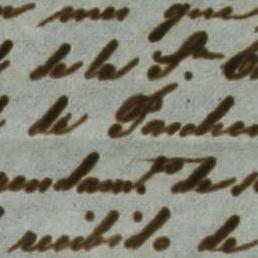 mes que
de la S.ra
de Pasche
rendam.to de
recibido de